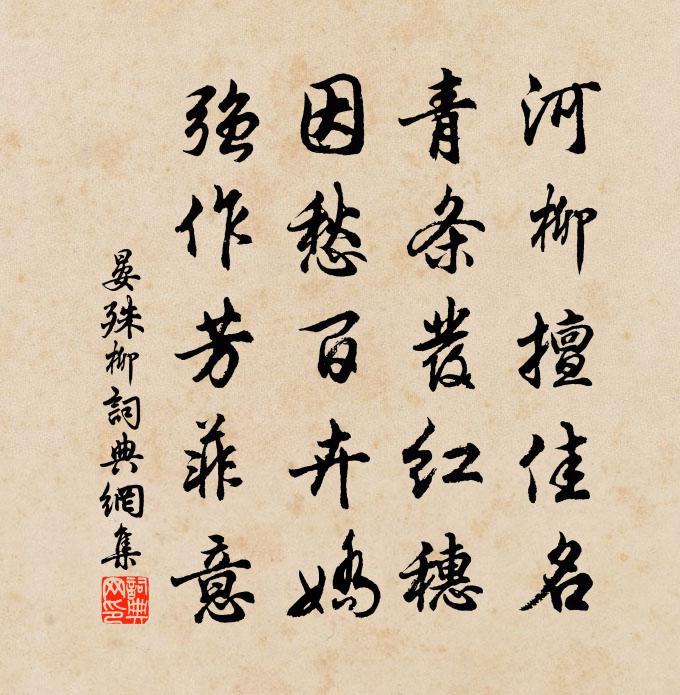 河柳擅佳名
青条發红穗
因愁百卉嬌
強作芳菲意
晏殊柳詞典網集
詞典網印